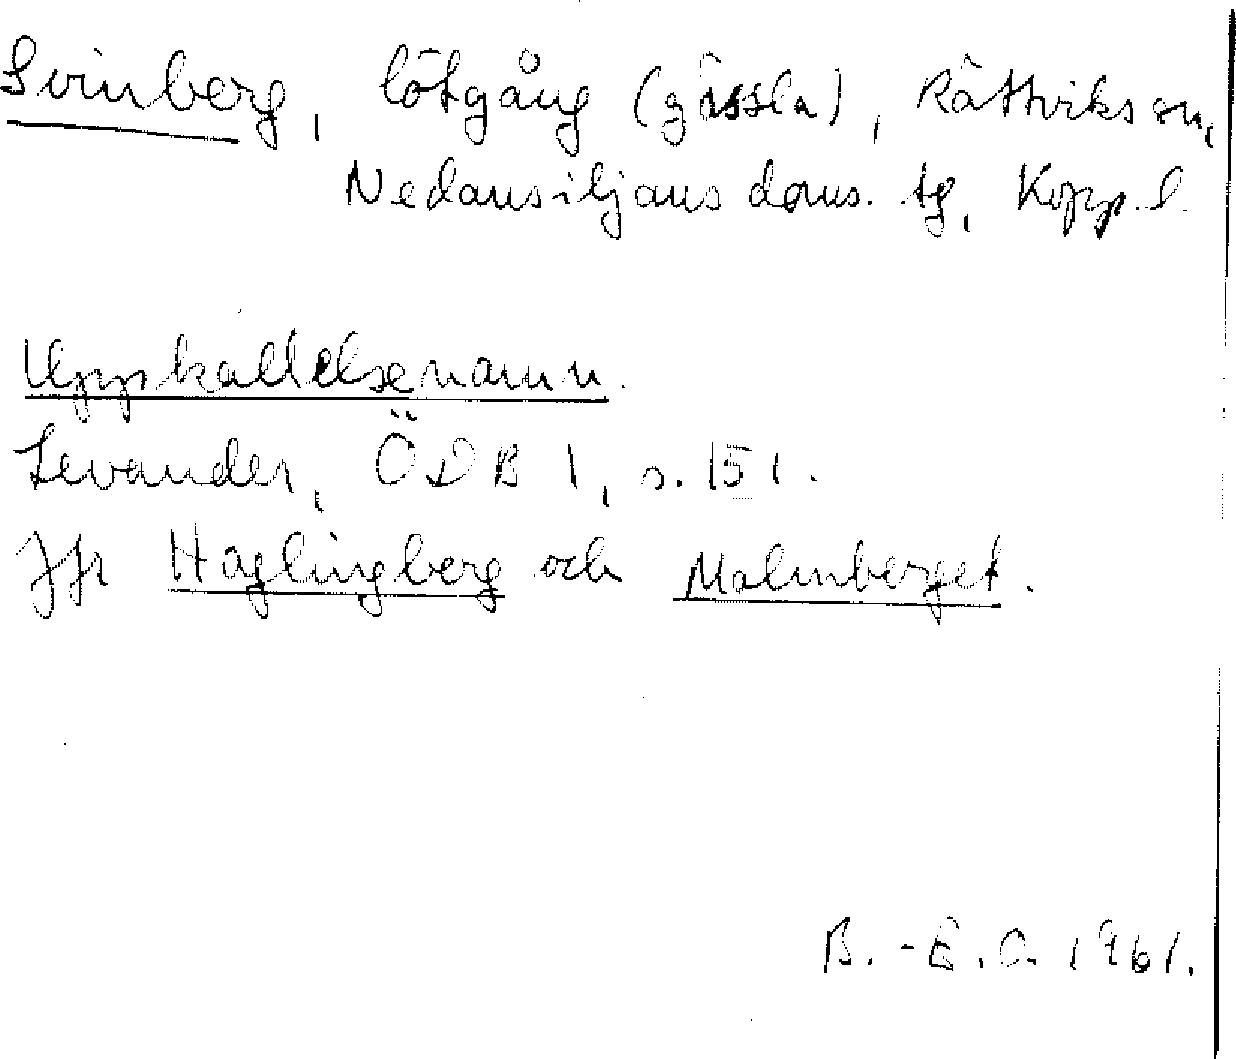 Svinberg, lötgång (gässla), Rättviks sn,
Nedansiljans doms. tg, Kopp. l.
Uppkallelsenamn.
Levander, ÖDB 1, s. 151.
Jfr Haglingberg och Malmberget.
B.-E. O. 1961.